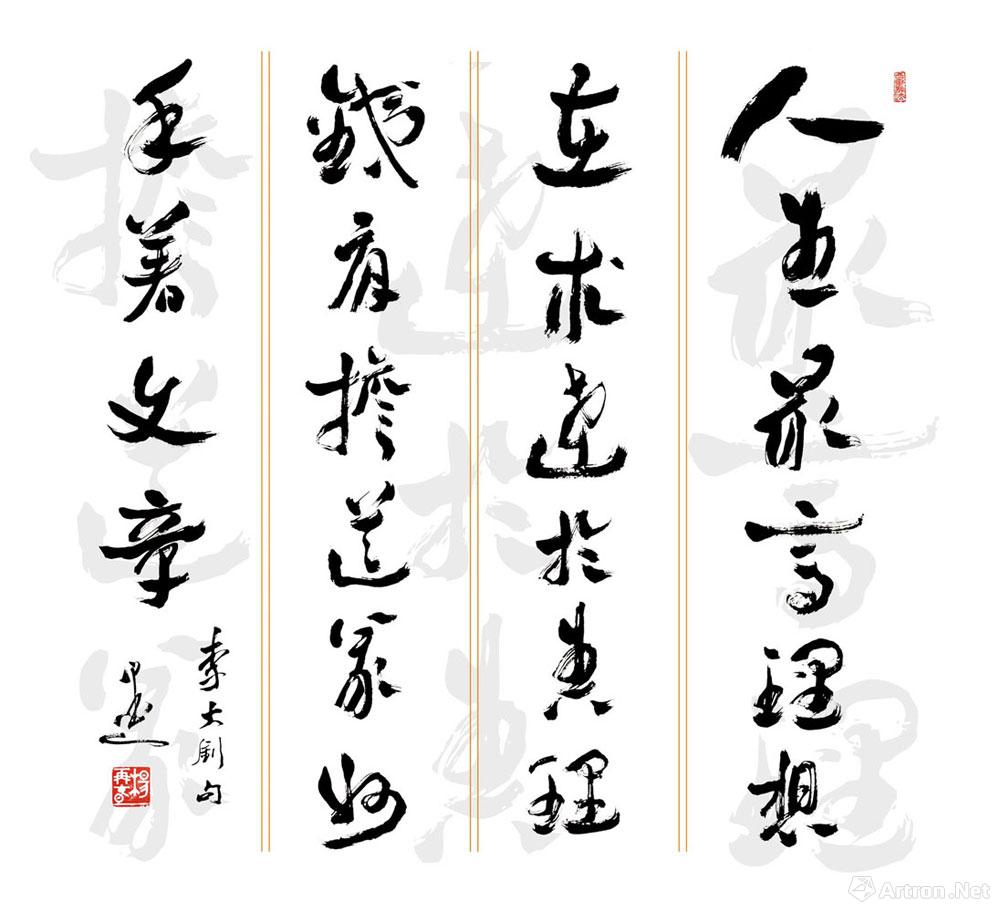 人生最高理想
在求達於真理
鐵肩擔道義妙
手著文章
李大釗句
Artron.Net